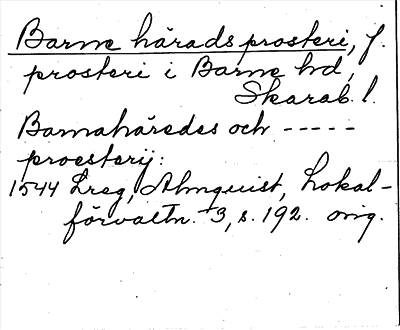 Barne härads prosteri, f.
prosteri i Barne hd,
Skarab. l.
Barnahäredes och -----
proesterij:
1544 Lreg, Almquist, Lokal-
förvaltn. 3, s. 192. orig.